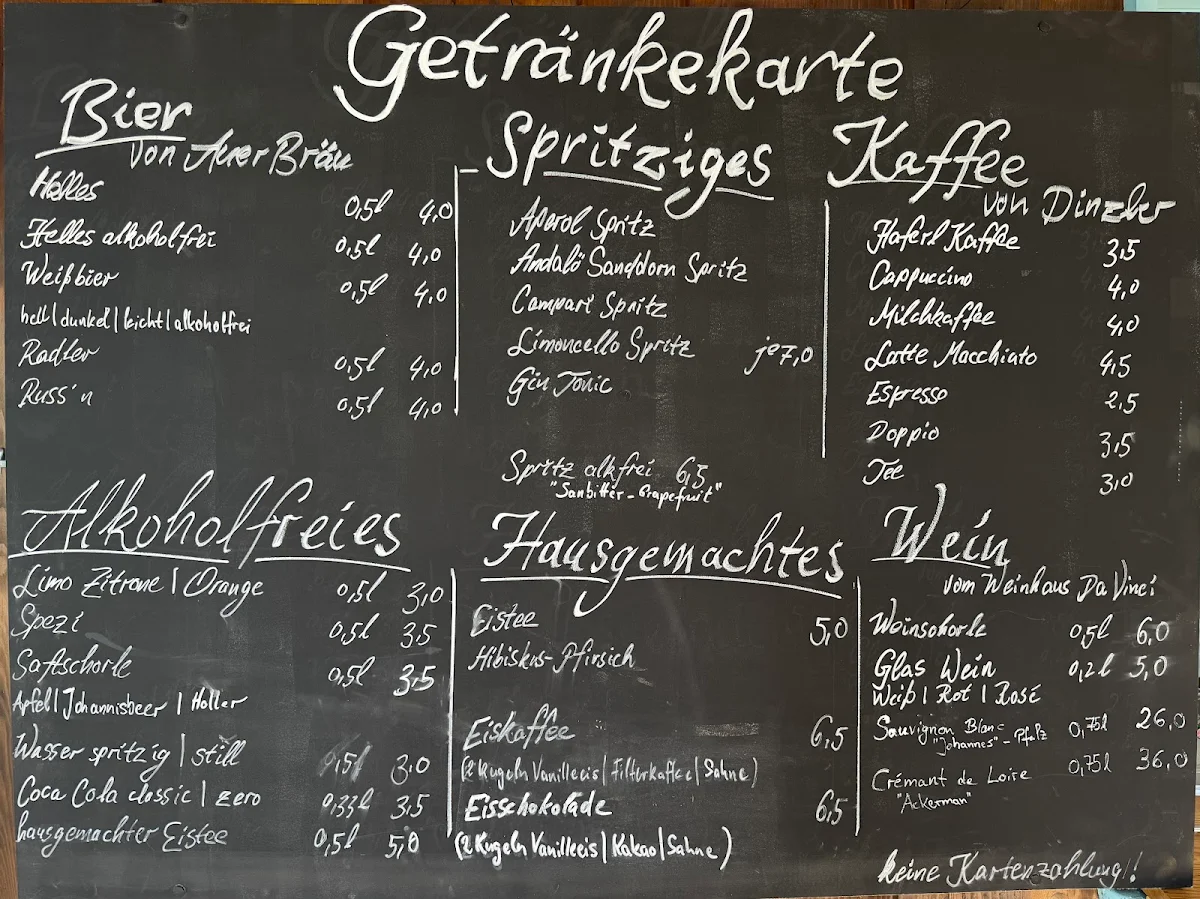 Getränkekarte
Bier
von Auer Bräu
Helles 0,5l 4,0
Helles alkoholfrei 0,5l 4,0
Weißbier 0,5l 4,0
hell | dunkel | leicht | alkoholfrei
Radler 0,5l 4,0
Russ'n 0,5l 4,0
Spritziges
Aperol Spritz
Andalö Sanddorn Spritz
Campari Spritz
Limoncello Spritz je 7,0
Gin Tonic
Spritz alkfrei 6,5
"Sanbitter-Grapefruit"
Kaffee
von Dinzler
Haferl Kaffee 3,5
Cappuccino 4,0
Milchkaffee 4,0
Latte Macchiato 4,5
Espresso 2,5
Doppio 3,5
Tee 3,0
Alkoholfreies
Limo Zitrone | Orange 0,5l 3,0
Spezi 0,5l 3,5
Saftschorle 0,5l 3,5
Apfel | Johannisbeer | Holler
Wasser spritzig | still 0,5l 3,0
Coca Cola classic | zero 0,33l 3,5
hausgemachter Eistee 0,5l 5,0
Hausgemachtes
Eistee 5,0
Hibiskus-Pfirsich
Eiskaffee 6,5
(2 Kugeln Vanilleeis | Filterkaffee | Sahne)
Eisschokolade 6,5
(2 Kugeln Vanilleeis | Kakao | Sahne)
Wein
vom Weinhaus Da Vinci
Weinschorle 0,5l 6,0
Glas Wein 0,2l 5,0
Weiß | Rot | Rosé
Sauvignon Blanc 0,75l 26,0
"Johannes" - Pfalz
Crémant de Loire 0,75l 36,0
"Ackerman"
keine Kartenzahlung!!